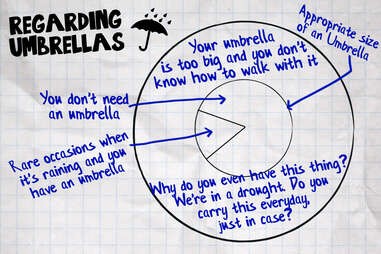 REGARDING
UMBRELLAS
Your umbrella
is too big and you don't
know how to walk with it
Appropriate size
of an Umbrella
You don't need
an umbrella
Rare occasions when
it's raining and you
have an umbrella
Why do you even have this thing?
We're in a drought. Do you
carry this everyday,
just in case?